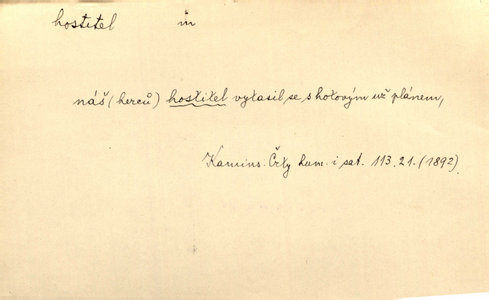 hostitel m
náš (herců) hostitel vytasil se s hotovým už plánem,
Kamins. Črty hum. i sat. 113.21. (1892).